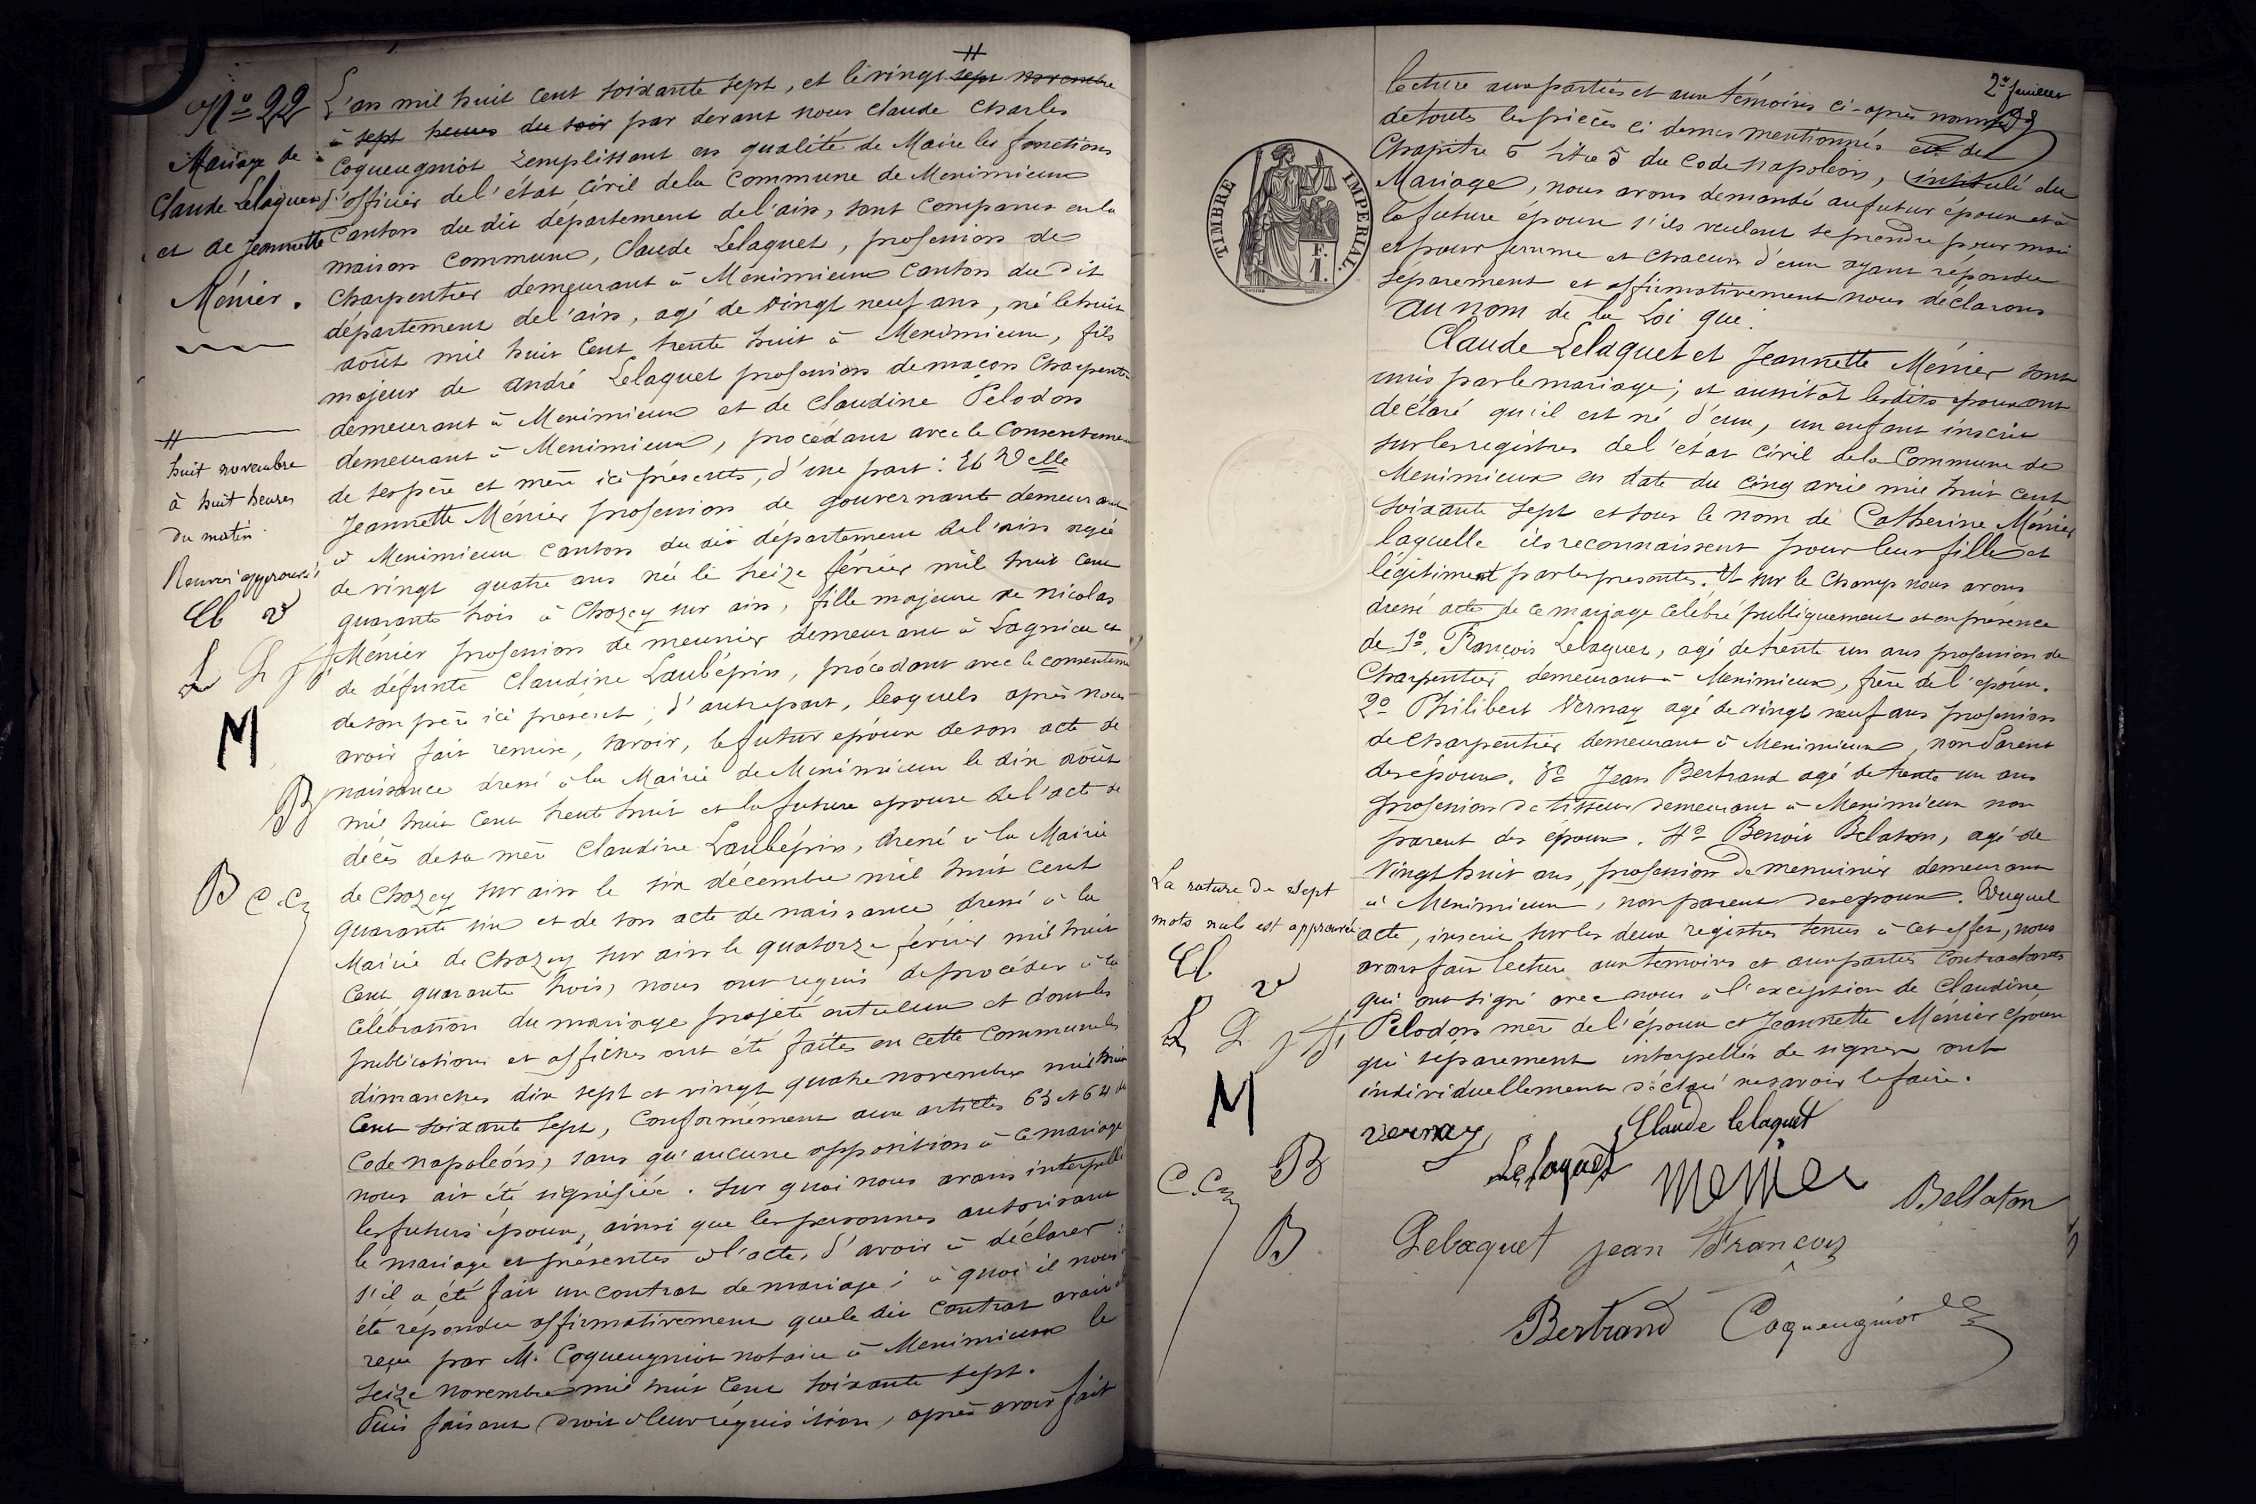 Nº 22
Mariage de
Claude Lelaguet
et de Jeannette
Ménier.
L'an mil huit cent soixante sept, et le vingt sept novembre
à sept heures du soir par devant nous Claude Charles
Coqueugniot remplissant en qualité de Maire les fonctions
d'officier de l'état civil de la Commune de Meximieux
Canton du dit département de l'ain, sont comparus en la
maison Commune, Claude Lelaguet, profession de
Charpentier demeurant à Meximieux Canton du dit
département de l'ain, agé de vingt neuf ans, né le huit
août mil huit cent trente huit à Meximieux, fils
majeur de andré Lelaguet profession de maçon Charpentier
demeurant à Meximieux et de Claudine Pelodon
demeurant à Meximieux, procédant avec le Consentement
de ses père et mère ici présents, d'une part : Et Delle
Jeannette Ménier profession de gouvernante demeurant
à Meximieux Canton du dit département de l'ain agée
de vingt quatre ans née le treize février mil huit cent
quarante trois à Chazey sur ain, fille majeure de nicolas
Ménier profession de meunier demeurant à Lagnieu et
de défunte Claudine Laubépin, procédant avec le consentement
de son père ici présent, d'autre part, lesquels après nous
avoir fait remise, savoir, le futur époux de son acte de
naissance dressé à la Mairie de Meximieux le dix août
mil huit cent trente huit et la future épouse de l'acte de
décès de sa mère Claudine Laubépin, dressé à la Mairie
de Chazey sur ain le six décembre mil huit cent
quarante six et de son acte de naissance dressé à la
Mairie de Chazey sur ain le quatorze février mil huit
Cent quarante trois, nous ont requis de procéder à la
Célébration du mariage projeté entre eux et dont les
publications et affiches ont été faites en cette Commune les
dimanches dix sept et vingt quatre novembre mil huit
Cent soixante sept, Conformément aux articles 63 et 64 du
Code napoléon, sans qu'aucune opposition à ce mariage
nous ait été signifiée. sur quoi nous avons interpellé
les futurs époux, ainsi que les personnes autorisant
le mariage et présentes à l'acte, d'avoir à déclarer
s'il a été fait un contrat de mariage ; à quoi il nous
été répondu affirmativement que le dit contrat avait
reçu par M. Coqueugniot notaire à Meximieux le
seize novembre mil huit Cent soixante sept.
Puis faisant droit à leur réquisition, après avoir fait
huit novembre
à huit heures
du matin
Renvoi approuvé
Cl v
L
M
B
B C.C.
2e feuillet
lecture aux parties et aux témoins ci-après nommés
de toutes les pièces ci dessus mentionnés et du
Chapitre 6 titre 5 du Code napoléon, intitulé du
Mariage, nous avons demandé au futur époux et à
la future épouse s'ils veulent se prendre pour mari
et pour femme et chacun d'eux ayant répondu
séparement et affirmativement nous déclarons
au nom de la Loi que :
Claude Lelaguet et Jeannette Ménier sont
unis par le mariage ; et aussitôt les dits époux ont
déclaré qu'il est né d'eux, un enfant inscrit
sur les registres de l'état Civil de la Commune de
Meximieux en date du cinq avril mil huit cent
soixante sept et sous le nom de Catherine Ménier
laquelle ils reconnaissent pour leur fille et
légitiment par les présentes. Et sur le champ nous avons
dressé acte de ce mariage célébré publiquement et en présence
de 1º. François Lelaguet, agé de trente un ans profession de
Charpentier demeurant à Meximieux, frère de l'époux.
2º Philibert Vernay agé de vingt neuf ans profession
de charpentier demeurant à Meximieux, non Parent
des époux. 3º Jean Bertrand agé de trente un ans
profession de tisseur demeurant à Meximieux non
parent des époux. 4º Benoit Belaton, agé de
Vingt huit ans, profession de menuisier demeurant
à Meximieux, non parent des époux. Duquel
acte, inscrit sur les deux registres tenus à cet effet, nous
avons fait lecture aux témoins et aux parties Contractantes
qui ont signé avec nous à l'exception de Claudine
Pelodon mère de l'époux et Jeannette Ménier épouse
qui séparement interpellés de signer ont
individuellement déclaré ne savoir le faire.
La rature de sept
mots nuls est approuvée
Cl v
L
M
C.C. B
B
vernay Claude lelaguet
Lelaguet menier B. Bellaton
Lelaguet jean François
Bertrand Coqueugniot
TIMBRE IMPERIAL.